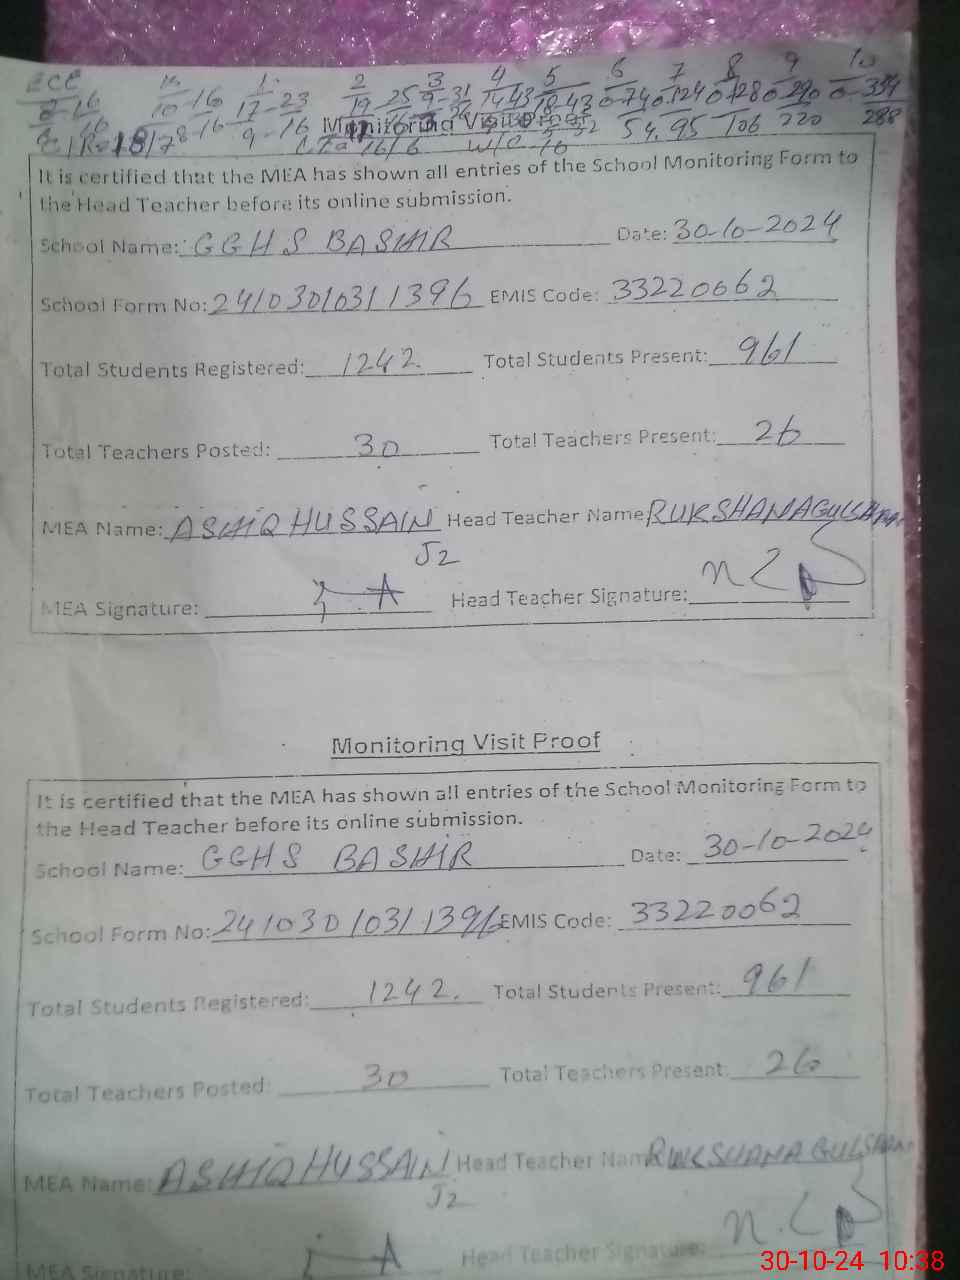 ECE 1 2 3 4 5 6 7 8 9 10
10-16 17-23 19-25 9-31 14-43 18-43 0-74 0-124 0-128 0-290 0-334
9-16 54 95 106 220 288
Monitoring Visit Proof
It is certified that the MEA has shown all entries of the School Monitoring Form to
the Head Teacher before its online submission.
School Name: GGHS BASHIR Date: 30-10-2024
School Form No: 24103010311396 EMIS Code: 33220062
Total Students Registered: 1242 Total Students Present: 961
Total Teachers Posted: 30 Total Teachers Present: 26
MEA Name: ASHIQ HUSSAIN Head Teacher Name RUKSHANA GULSHAN
J2
MEA Signature: Head Teacher Signature:
Monitoring Visit Proof
It is certified that the MEA has shown all entries of the School Monitoring Form to
the Head Teacher before its online submission.
School Name: GGHS BASHIR Date: 30-10-2024
School Form No: 24103010311396 EMIS Code: 33220062
Total Students Registered: 1242. Total Students Present: 961
Total Teachers Posted: 30 Total Teachers Present: 26
MEA Name: ASHIQ HUSSAIN Head Teacher Name RUKSHANA GULSHAN
J2
MEA Signature: Head Teacher Signature:
30-10-24 10:38